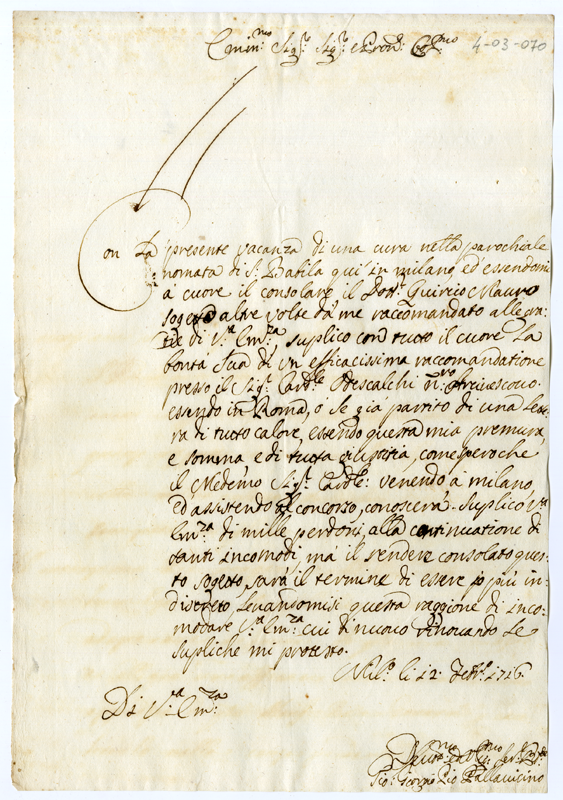 Emin:mo Sig:re Sig:re e Pron: Col:mo
4-03-070
Con La presente vacanza di una cura nella parochiale
nomata di S: Babila qui in milano, ed essendomi
à cuore il consolare il Dott:r Quircio Mauro
sogetto altre volte dà me raccomandato alle gra:
tie di V:ra Em:za, suplico con tutto il cuore La
bontà Sua di un efficacissima raccomandatione
presso il Sig:r Card:le Odescalchi n:ro Arcivescovo
essendo in Roma, ò se già partito di una Lett:
ra di tutto calore, essendo questa mia premura,
e somma e di tutta giustitia, come però che
il Medemo Sig:r Card:le venendo à milano,
ed assistendo al concorso, conoscerà. Suplico V:ra
Em:za di mille perdoni, alla continuatione di
tanti incomodi, mà il rendere consolato ques:
to sogetto, sarà il termine di essere io più in:
discreto, Levandomisi questa raggione di inco:
modare V:ra Em:za cui di nuovo rinovando Le
supliche mi protesto.
Mil:o li 12 1716
Di V:ra Em:za
Gio: Giorgio Pallavicino